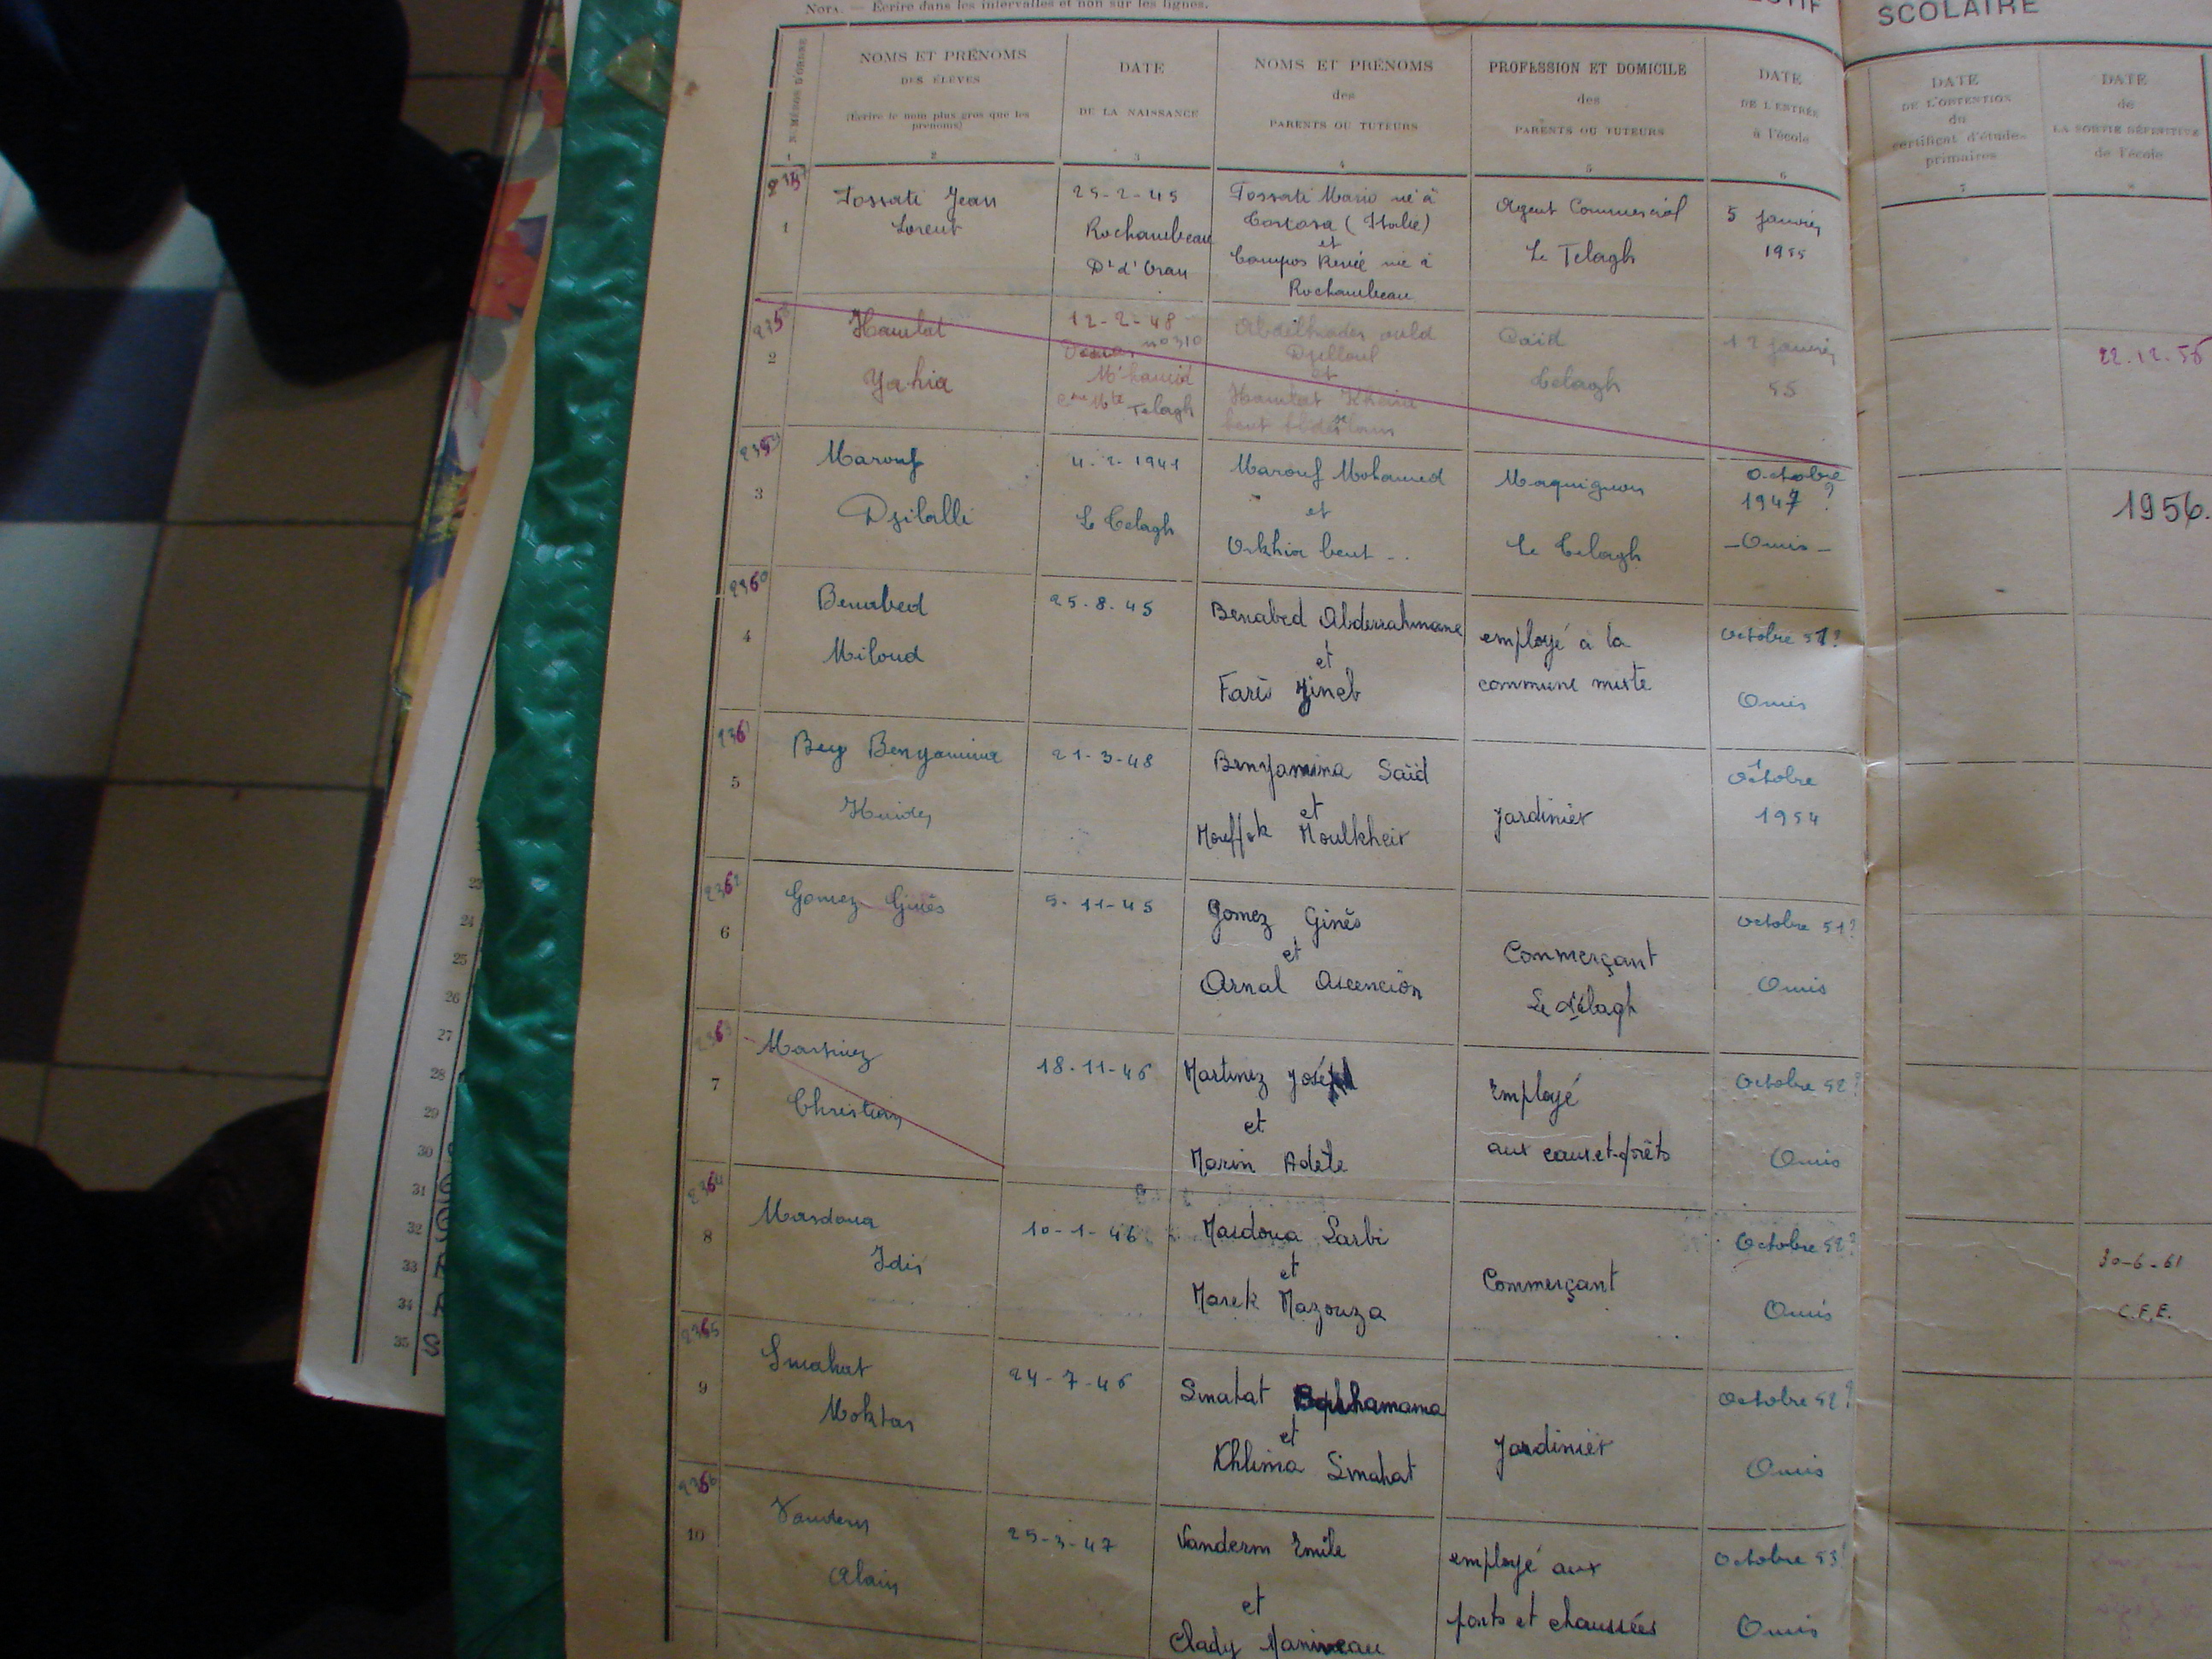 NOTA. — Écrire dans les intervalles et non sur les lignes.
SCOLAIRE
NUMÉROS D'ORDRE
1
NOMS ET PRÉNOMS
DES ÉLÈVES
(Écrire le nom plus gros que les
prénoms)
2
DATE
DE LA NAISSANCE
3
NOMS ET PRÉNOMS
des
PARENTS OU TUTEURS
4
PROFESSION ET DOMICILE
des
PARENTS OU TUTEURS
5
DATE
DE L'ENTRÉE
à l'école
6
DATE
DE L'OBTENTION
du
certificat d'études
primaires
7
DATE
de
LA SORTIE DÉFINITIVE
de l'école
8
1
Tossati Jean
Lorent
25-2-45
Rochambeau
Dt d'Oran
Tossati Mario né à
(Italie)
et
Campos Renée née à
Rochambeau
Agent Commercial
Le Telagh
5 janvier
1955
2358
2
Hamlat
Yahia
12-2-48
n° 310
M'hamid
Cne Mte Telagh
Abdelkader ould
Djelloul
et
Hamlat Kheira
bent
Caïd
Telagh
12 janvier
55
22.12.56
2359
3
Marouf
Djilalli
4.2.1941
Le Telagh
Marouf Mohamed
et
Orkhia bent ..
Maquignon
Le Telagh
Octobre
1947 ?
- Omis -
1956.
2360
4
Benabed
Miloud
25.8.45
Benabed Abderrahmane
et
Farès Zineb
employé à la
commune mixte
Octobre 51?
Omis
2361
5
Bey Benyamina
21-3-48
Benyamina Saïd
et
Mouffok Moulkheir
jardinier
Octobre
1954
2362
6
Gomez Ginès
5-11-45
Gomez Ginès
et
Arnal Ascencion
Commerçant
Le Télagh
Octobre 51?
Omis
2363
7
Martinez
Christian
18-11-46
Martinez José
et
Marin Adèle
Employé
aux eaux-et-forêts
Octobre 52?
Omis
2364
8
Masdoua
Idis
10-1-46
Masdoua Larbi
et
Marek Mazouza
Commerçant
Octobre 52?
Omis
30-6-61
C.F.E.
2365
9
Smahat
Moktar
24-7-46
Smahat
et
Khlima Smahat
Jardinier
Octobre 52?
Omis
2366
10
Vanderm
Alain
25-3-47
Vanderm Emile
et
Clady Maniveau
employé aux
ponts et chaussées
Octobre 53?
Omis
23
24
25
26
27
28
29
30
31
32
33
34
35